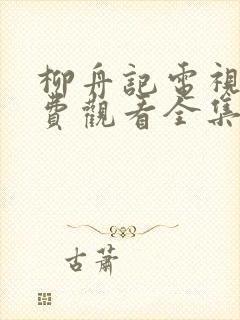 柳舟記電視
費觀看全集
古蕭